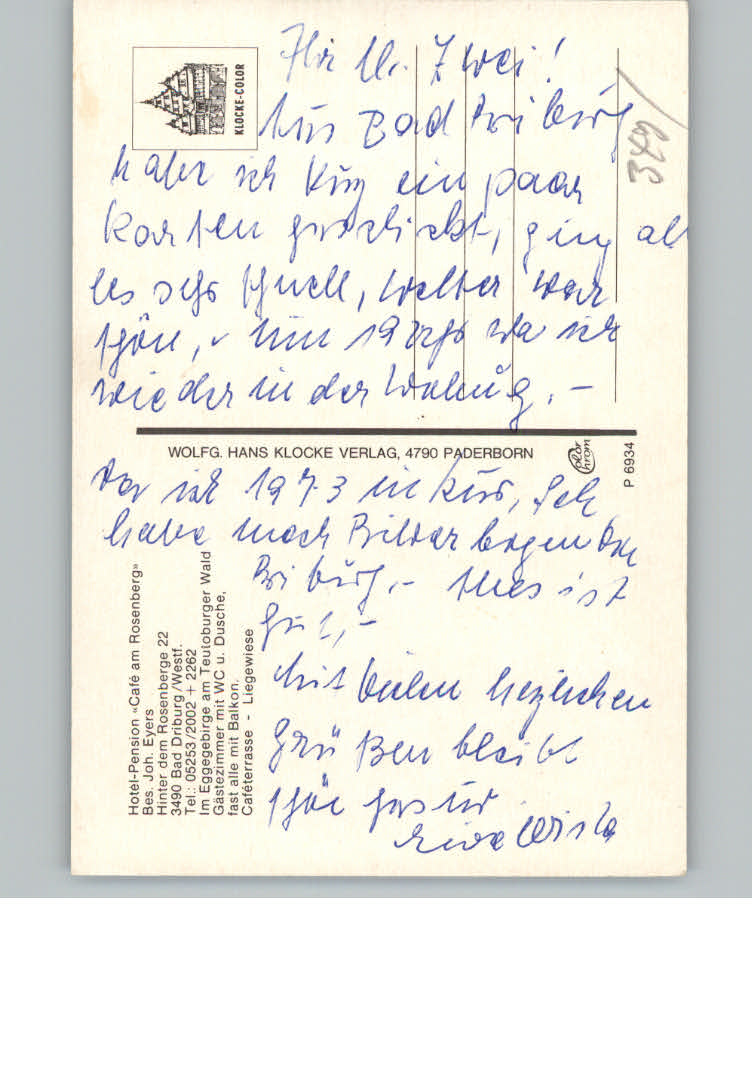 Ihr l. Zwei!
KLOCKE-COLOR
Aus Bad Driburg
349
habe ich kurz ein paar
Karten geschickt, ging al
les sehr schnell, Wetter war
schön, Um 19 Uhr wa ich
wieder in der Wohnug. -
WOLFG. HANS KLOCKE VERLAG, 4790 PADERBORN
color chrom
P 6934
War ich 1973 in Kur, Ich
habe noch Bilder
Driburg. - Alles ist
gut, -
Hotel-Pension «Café am Rosenberg»
Bes. Joh. Eyers
Hinter dem Rosenberge 22
3490 Bad Driburg/Westf.
Tel.: 05253/2002 + 2262
Im Eggegebirge am Teutoburger Wald
Gästezimmer mit WC u. Dusche,
fast alle mit Balkon.
Caféterrasse - Liegewiese
Mit vielen herzlichen
Grüßen bleibt
schön gesund